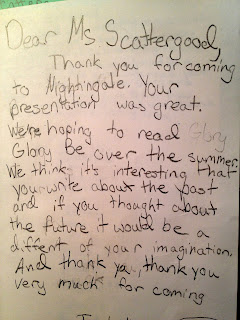 Dear Ms. Scattergood,
Thank you for coming
to Nightingale. Your
presentation was great.
We're hoping to read Glory
Glory Be, over the summer.
We think it's interesting that
you write about the past
and if you thought about
the future it would be a
diffent of your imagination.
And thank you, thank you
very much for coming